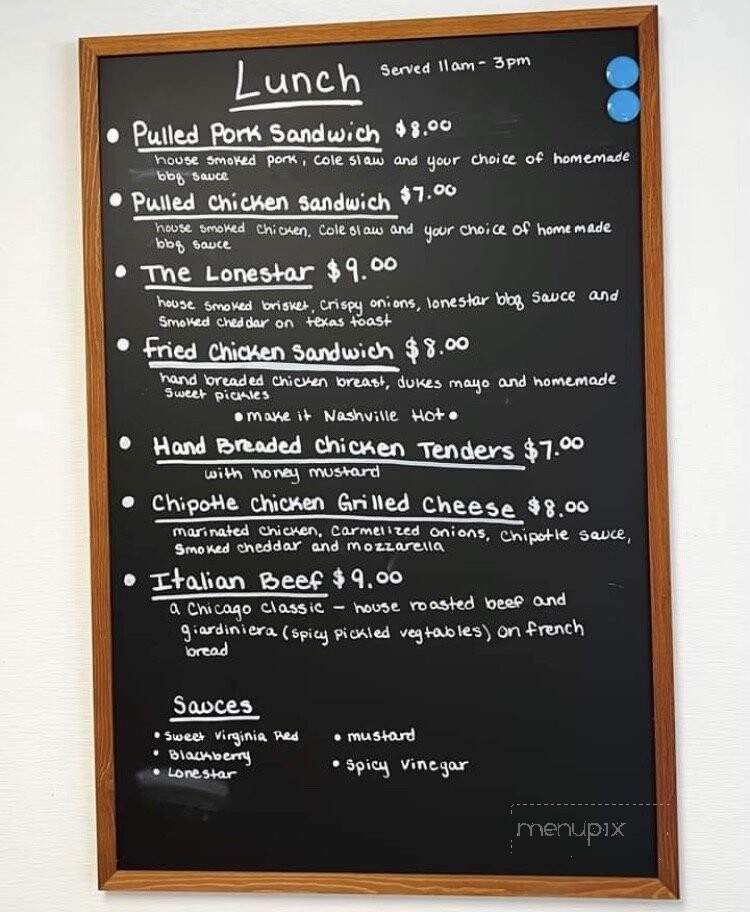 Lunch Served 11am - 3pm
• Pulled Pork Sandwich $8.00
house smoked pork, cole slaw and your choice of homemade
bbq sauce
• Pulled Chicken Sandwich $7.00
house smoked chicken, cole slaw and your choice of homemade
bbq sauce
• The Lonestar $9.00
house smoked brisket, crispy onions, lonestar bbq sauce and
smoked cheddar on texas toast
• Fried Chicken Sandwich $8.00
hand breaded chicken breast, dukes mayo and homemade
sweet pickles
• make it Nashville Hot •
• Hand Breaded Chicken Tenders $7.00
with honey mustard
• Chipotle Chicken Grilled Cheese $8.00
marinated chicken, carmelized onions, chipotle sauce,
smoked cheddar and mozzarella
• Italian Beef $9.00
a Chicago classic - house roasted beef and
giardiniera (spicy pickled vegtables) on french
bread
Sauces
• Sweet Virginia Red
• Blackberry
• Lonestar
• mustard
• spicy vinegar
menupix